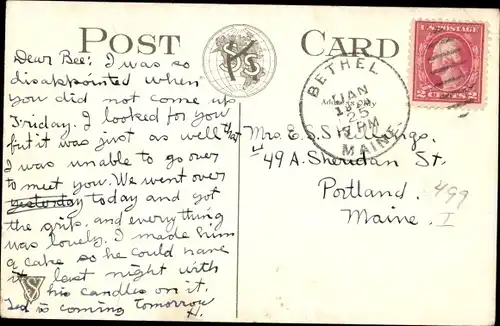 POST CARD
Dear Bee: I was so
disappointed when
you did not come up
Friday. I looked for you
but it was just as well
I was unable to go over
to meet you. We went over
yesterday today and got
the grip. and everything
was lovely. I made him
a cake so he could have
it last night with
his candles on it.
Ted is coming tomorrow
H.
U.S. POSTAGE
2 CENTS 2
BETHEL
JAN
18
25
PM
MAINE
Mrs. E. S. Stallings.
49 A. Sheridan St.
Portland,
Maine.
499
I